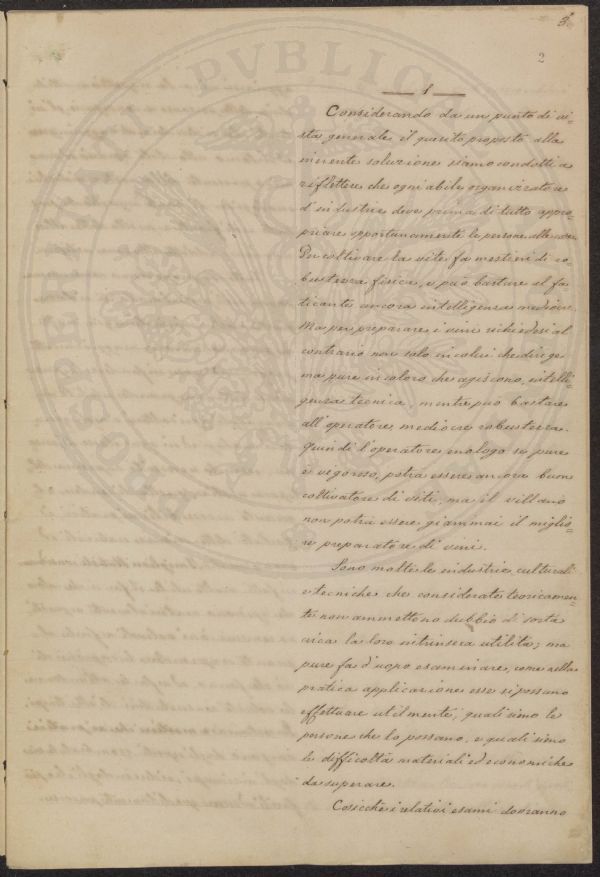 2
1
Considerando da un punto di vi=
sta generale il quesito proposto alla
inerente soluzione siamo condotti a
riflettere che ogni abile organizzatore
d'industrie deve prima di tutto appro=
priare opportunamente le persone alle cose.
Per coltivare la vite fa mestieri di ro
bustezza fisica, e può bastare al fa
ticante ancora intelligenza mediocre.
Ma per preparare i vini richiedesi al
contrario non solo in colui che dirige
ma pure in coloro che agiscono, intelli=
genza tecnica, mentre può bastare
all'operatore mediocre robustezza.
Quindi l'operatore enologo se pure
è vegoroso, potrà essere ancora buon
coltivatore di viti, ma il villano
non potrà essere giammai il miglio=
re preparatore di vini.
Sono molte le industrie culturali
e tecniche che considerate teoricamen=
te non ammettono dubbio di sorta
circa la loro intrinseca utilità; ma
pure fa d'uopo esaminare, come nella
pratica applicazione esse si possano
effettuare utilmente, quali sieno le
persone che lo possano, e quali sieno
le difficoltà materiali ed economiche
da superare.
Cosicchè i relativi esami dovranno
PROSPERITATI PVBLICAE